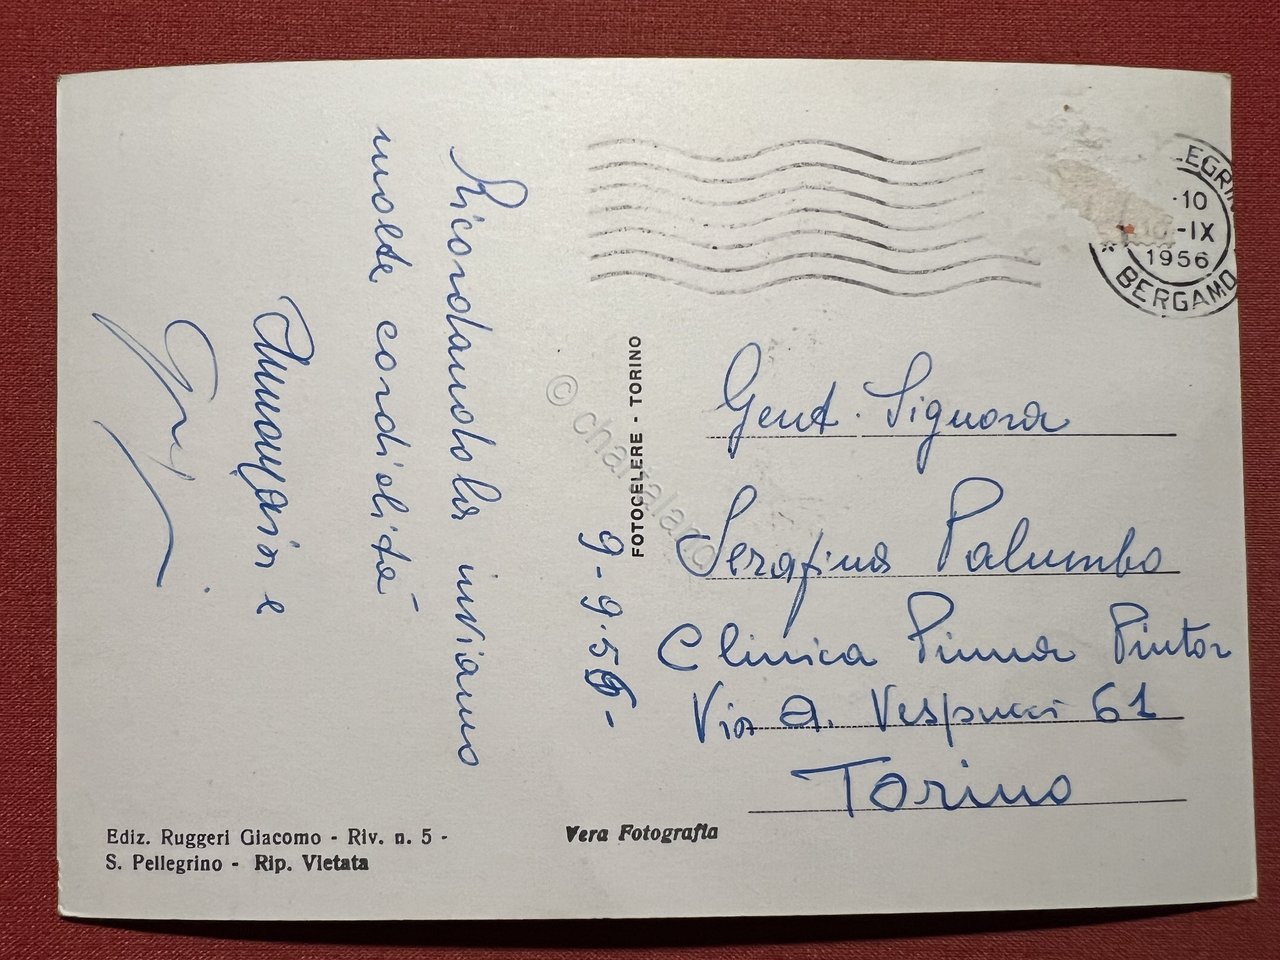 Ricordandola inviamo
molte cordialità
Annamaria e
9-9-56-
EGRIN
·10
-IX
1956
* BERGAMO
Gent. Signora
Serafina Palumbo
Clinica Pinna Pintor
Via A. Vespucci 61
Torino
FOTOCELERE - TORINO
Ediz. Ruggeri Giacomo - Riv. n. 5 -
S. Pellegrino - Rip. Vietata
Vera Fotografia